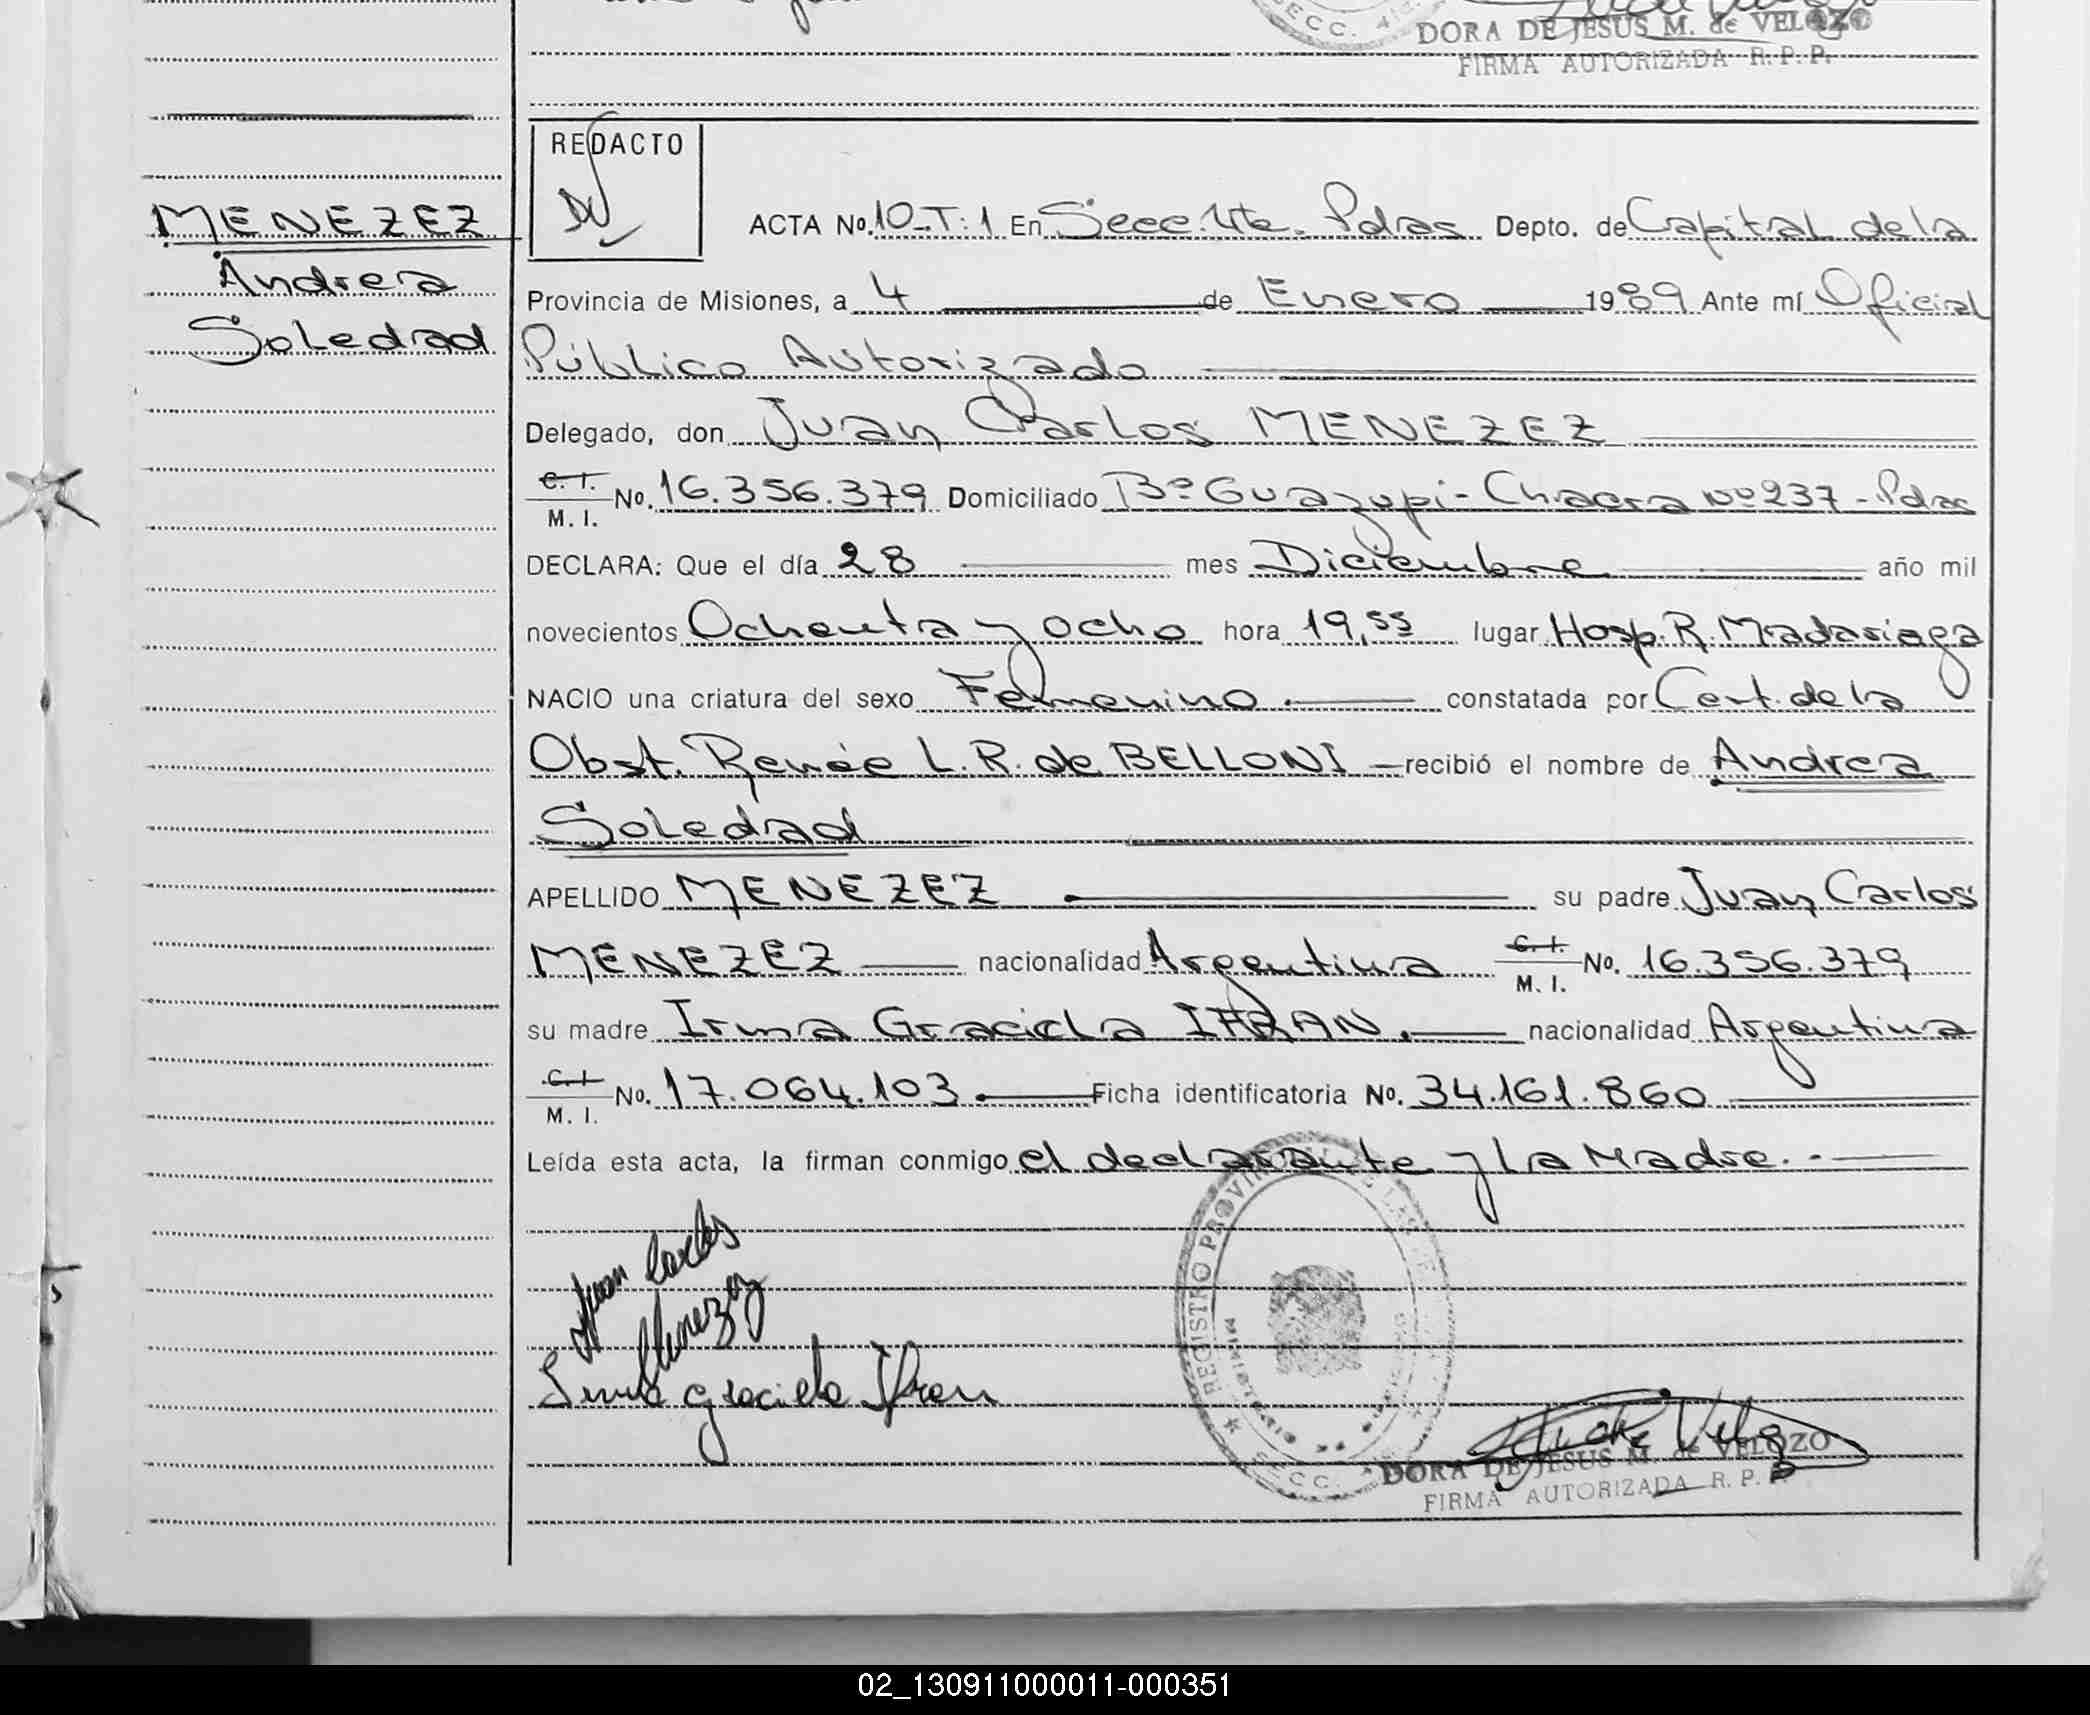 DORA DE JESUS M. de VELOZO
FIRMA AUTORIZADA R. P. P.
REDACTO
MENEZEZ
Andrea
Soledad
ACTA No. 10-T:1 En Secc. 4ta. Pdas Depto. de Capital de la
Provincia de Misiones, a 4 de Enero 1989 Ante mí Oficial
Público Autorizado
Delegado, don Juan Carlos MENEZEZ
C. I. M. I. No. 16.356.379 Domiciliado Bº Guazupi - Chacra Nº 237 - Pdas
DECLARA: Que el día 28 mes Diciembre año mil
novecientos Ochenta y ocho hora 19,55 lugar Hosp. R. Madariaga
NACIO una criatura del sexo Femenino constatada por Cert. de la
Obst. Renée L. R. de BELLONI recibió el nombre de Andrea
Soledad
APELLIDO MENEZEZ su padre Juan Carlos
MENEZEZ nacionalidad Argentina C. I. M. I. No. 16.356.379
su madre Irma Graciela IFRAN. nacionalidad Argentina
C. I. M. I. No. 17.064.103 Ficha identificatoria No. 34.161.860
Leída esta acta, la firman conmigo el declarante y la Madre.
Juan Carlos
Menezez
Irma Graciela Ifran
REGISTRO PROVINCIAL DE LAS
SECC.
DORA DE JESUS M. de VELOZO
FIRMA AUTORIZADA R. P. P.
02_130911000011-000351